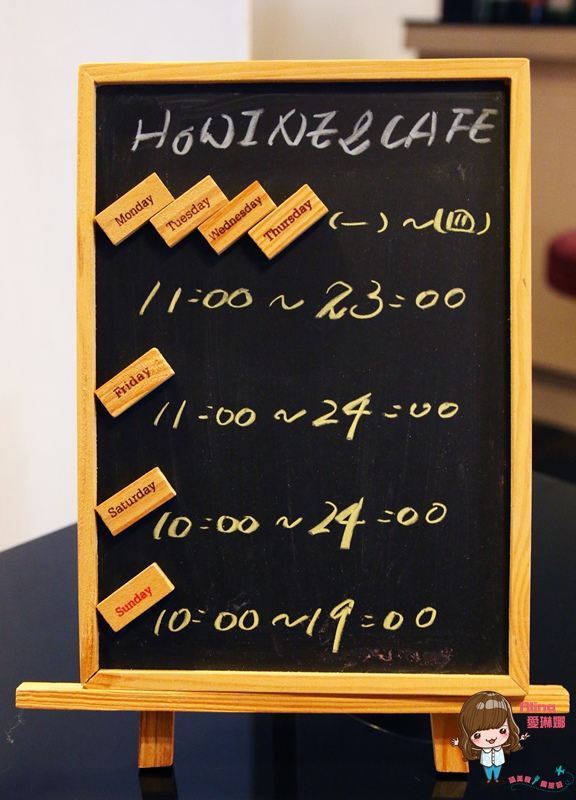 HOWINE&CAFE
Monday Tuesday Wednesday Thursday (一)~(四)
11:00~23:00
Friday 11:00~24:00
Saturday 10:00~24:00
Sunday 10:00~19:00
Alina
愛琳娜